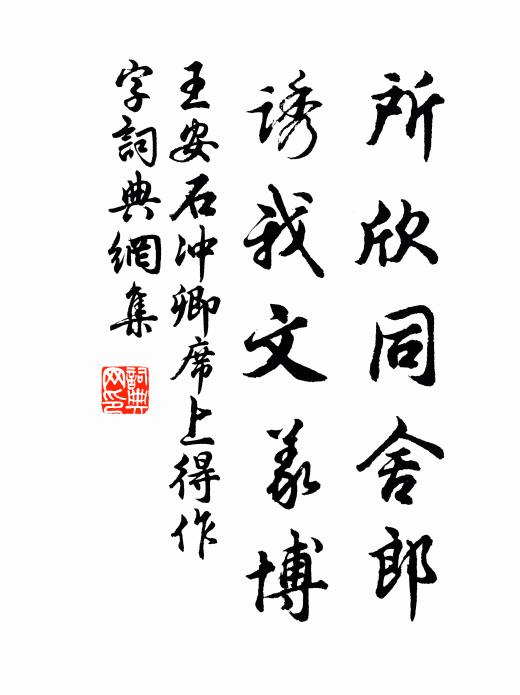 所欣同舍郎
诱我文义博
王安石冲卿席上得作
字詞典網集
詞典网印